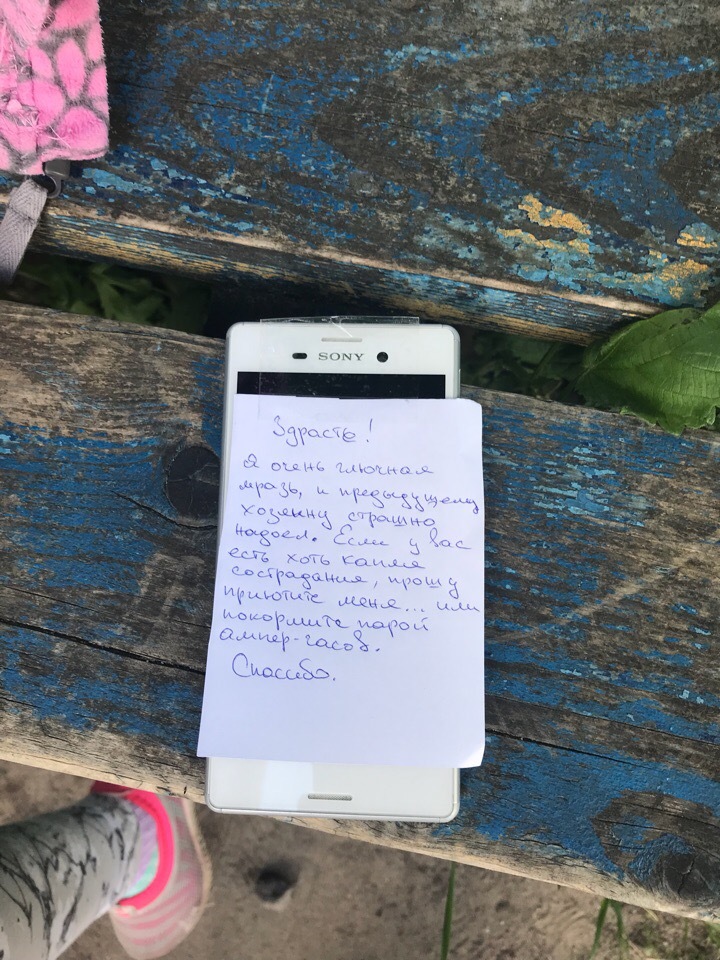 SONY
Здрасте!
Я очень глючная
мразь, и предыдущему
хозяину страшно
надоел. Если у вас
есть хоть капля
сострадания, прошу
приютите меня... или
покормите парой
ампер-часов.
Спасибо.